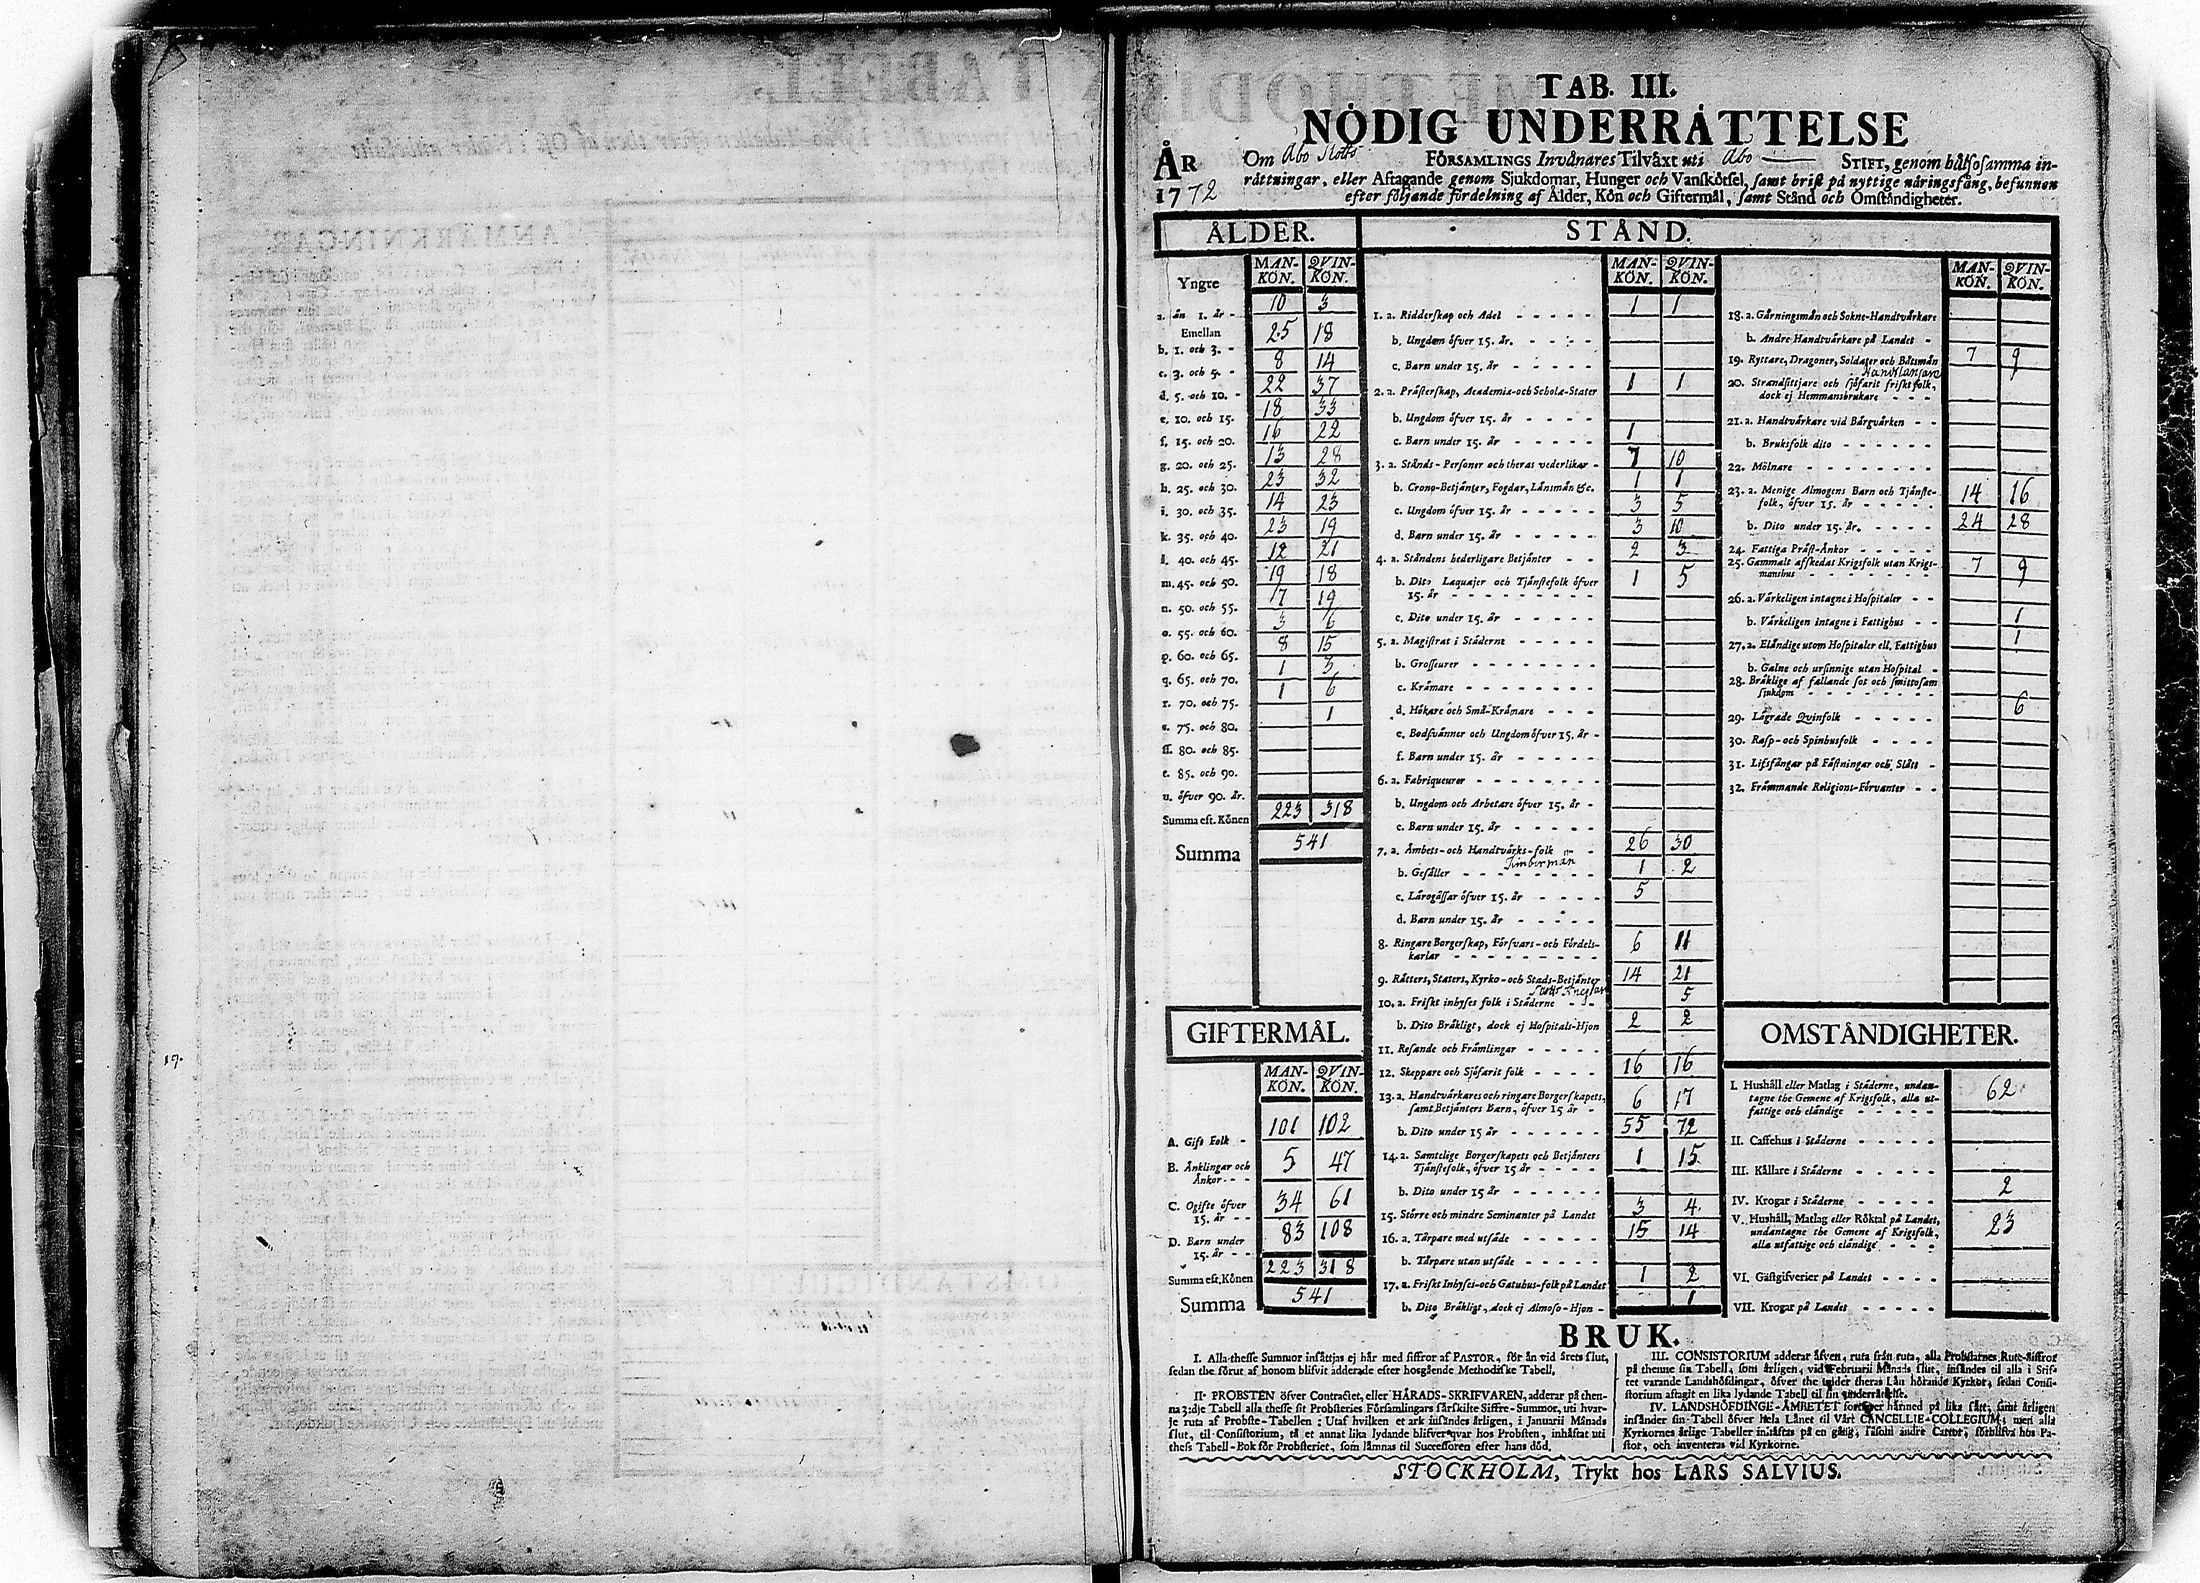 TAB. III.
NÖDIG UNDERRÄTTELSE
ÅR 1772
Om Åbo Slotts FÖRSAMLINGS Invånares Tilväxt uti Åbo STIFT, genom hälsosamma in-
rättningar, eller Aftagande genom Sjukdomar, Hunger och Vanskötsel, samt brist på nyttige näringsfång, befunnen
efter följande fördelning af Ålder, Kön och Giftermål, samt Stånd och Omständigheter.
ÅLDER.
MAN-KÖN. QVIN-KÖN.
Yngre
a. än 1. år - 10 3
Emellan
b. 1. och 3. - 25 18
c. 3. och 5. - 8 14
d. 5. och 10. - 22 37
e. 10. och 15. 18 33
f. 15. och 20. 16 22
g. 20. och 25. 13 28
h. 25. och 30. 23 32
i. 30. och 35. 14 23
k. 35. och 40. 23 19
l. 40. och 45. 12 21
m. 45. och 50. 19 18
n. 50. och 55. 7 19
o. 55. och 60. 3 6
p. 60. och 65. 8 15
q. 65. och 70. 1 3
r. 70. och 75. 1 6
s. 75. och 80. 1
ss. 80. och 85.
t. 85. och 90.
u. öfver 90. år.
Summa eft. Könen 223 318
Summa 541
GIFTERMÅL.
MAN-KÖN. QVIN-KÖN.
A. Gift Folk - 101 102
B. Änklingar och Änkor - - 5 47
C. Ogifte öfver 15. år - - 34 61
D. Barn under 15. år - - 83 108
Summa eft. Könen 223 318
Summa 541
STÅND.
MAN-KÖN. QVIN-KÖN.
1. a. Ridderskap och Adel 1 1
b. Ungdom öfver 15. år.
c. Barn under 15. år
2. a. Prästerskap, Academiæ-och Scholæ-Stater 1 1
b. Ungdom öfver 15. år
c. Barn under 15. år 1
3. a. Stånds-Personer och theras vederlikar - 7 10
b. Crono-Betjänter, Fogdar, Länsmän &c. 1 1
c. Ungdom öfver 15. år 3 5
d. Barn under 15. år 3 10
4. a. Ståndens hederligare Betjänter 2 3
b. Dito Laquajer och Tjänstefolk öfver 15. år 1 5
c. Dito under 15. år
5. a. Magistrat i Städerne
b. Grosseurer
c. Krämare
d. Hökare och Små-Krämare
e. Bodsvänner och Ungdom öfver 15. år -
f. Barn under 15. år
6. a. Fabriqueurer
b. Ungdom och Arbetare öfver 15. år -
c. Barn under 15. år
7. a. Ämbets-och Handtvärks-folk 26 30
Timberman
b. Gesäller 1 2
c. Lärogåssar öfver 15. år 5
d. Barn under 15. år
8. Ringare Borgerskap, Försvars-och Fördels-karlar 6 11
9. Rätters, Staters, Kyrko-och Stads-Betjänter 14 21
10. a. Friskt inhyses folk i Städerne 5
b. Dito Bräkligt, dock ej Hospitals-Hjon 2 2
11. Resande och Främlingar
12. Skeppare och Sjöfarit folk 16 16
13. a. Handtvärkares och ringare Borgerskapets, samt Betjänters Barn, öfver 15 år - 6 17
b. Dito under 15 år 55 72
14. a. Samtelige Borgerskapets och Betjänters Tjänstefolk, öfver 15 år 1 15
b. Dito under 15 år
15. Större och mindre Seminanter på Landet 3 4
16. a. Tårpare med utsäde 15 14
b. Tårpare utan utsäde
17. a. Friskt Inhyses-och Gatuhus-folk på Landet 1 2
b. Dito Bräkligt, dock ej Almoso-Hjon - 1
MAN-KÖN. QVIN-KÖN.
18. a. Gärningsmän och Sokne-Handtvärkare
b. Andre Handtvärkare på Landet -
19. Ryttare, Dragoner, Soldater och Båtsmän 7 9
Handtlangare
20. Strandsittjare och sjöfarit friskt folk, dock ej Hemmansbrukare
21. a. Handtvärkare vid Bärgvärken
b. Bruksfolk dito
22. Mölnare
23. a. Menige Almogens Barn och Tjänste-folk, öfver 15. år 14 16
b. Dito under 15. år. 24 28
24. Fattiga Präst-Änkor
25. Gammalt afskedat Krigsfolk utan Krigs-manshus 7 9
26. a. Värkeligen intagne i Hospitaler
b. Värkeligen intagne i Fattighus 1
27. a. Eländige utom Hospitaler ell. Fattighus 1
b. Galne och ursinnige utan Hospital -
28. Bräklige af fallande sot och smittosam sjukdom
29. Lägrade Qvinfolk 6
30. Rasp-och Spinhusfolk
31. Lifsfångar på Fästningar och Slått -
32. Främmande Religions-Förvanter - -
OMSTÄNDIGHETER.
I. Hushåll eller Matlag i Städerne, undan-tagne the Gemene af Krigsfolk, alla ut-fattige och eländige 62
II. Caffehus i Städerne
III. Källare i Städerne
IV. Krogar i Städerne 2
V. Hushåll, Matlag eller Röktal på Landet, undantagne the Gemene af Krigsfolk, alla utfattige och eländige 23
VI. Gästgifverier på Landet
VII. Krogar på Landet
BRUK.
I. Alla thesse Summor insättjas ej här med siffror af PASTOR, för än vid årets slut,
sedan the förut af honom blifvit adderade efter hosgående Methodiske Tabell.
II. PROBSTEN öfver Contractet, eller HÄRADS-SKRIFVAREN, adderar på then-
na 3:dje Tabell alla thesse sit Probsteries Församlingars särskilte Siffre-Summor, uti hvar-
je ruta af Probste-Tabellen: Utaf hvilken et ark insändes årligen, i Januarii Månads
slut, til Consistorium, tå et annat lika lydande blifver qvar hos Probsten, inhäftat uti
thess Tabell-Bok för Probsteriet, som lämnas til Successoren efter hans död.
III. CONSISTORIUM adderar äfven, ruta från ruta, alla Probstarnes Rute-Siffror
på thenne sin Tabell, som årligen, vid Februarii Månads slut, insändes til alla i Stif-
tet varande Landshöfdingar, öfver the under theras Län hörande Kyrkor, sedan Consi-
storium aftagit en lika lydande Tabell til sin underrättelse.
IV. LANDSHÖFDINGE-ÄMBETET fortfar härmed på lika sätt, samt årligen
insänder sin Tabell öfver hela Länet til Vårt CANCELLIE-COLLEGIUM; men alla
Kyrkornes årlige Tabeller insättas på en gång, såsom andre Cartor, förblifva hos Pa-
stor, och inventeras vid Kyrkorne.
STOCKHOLM, Trykt hos LARS SALVIUS.